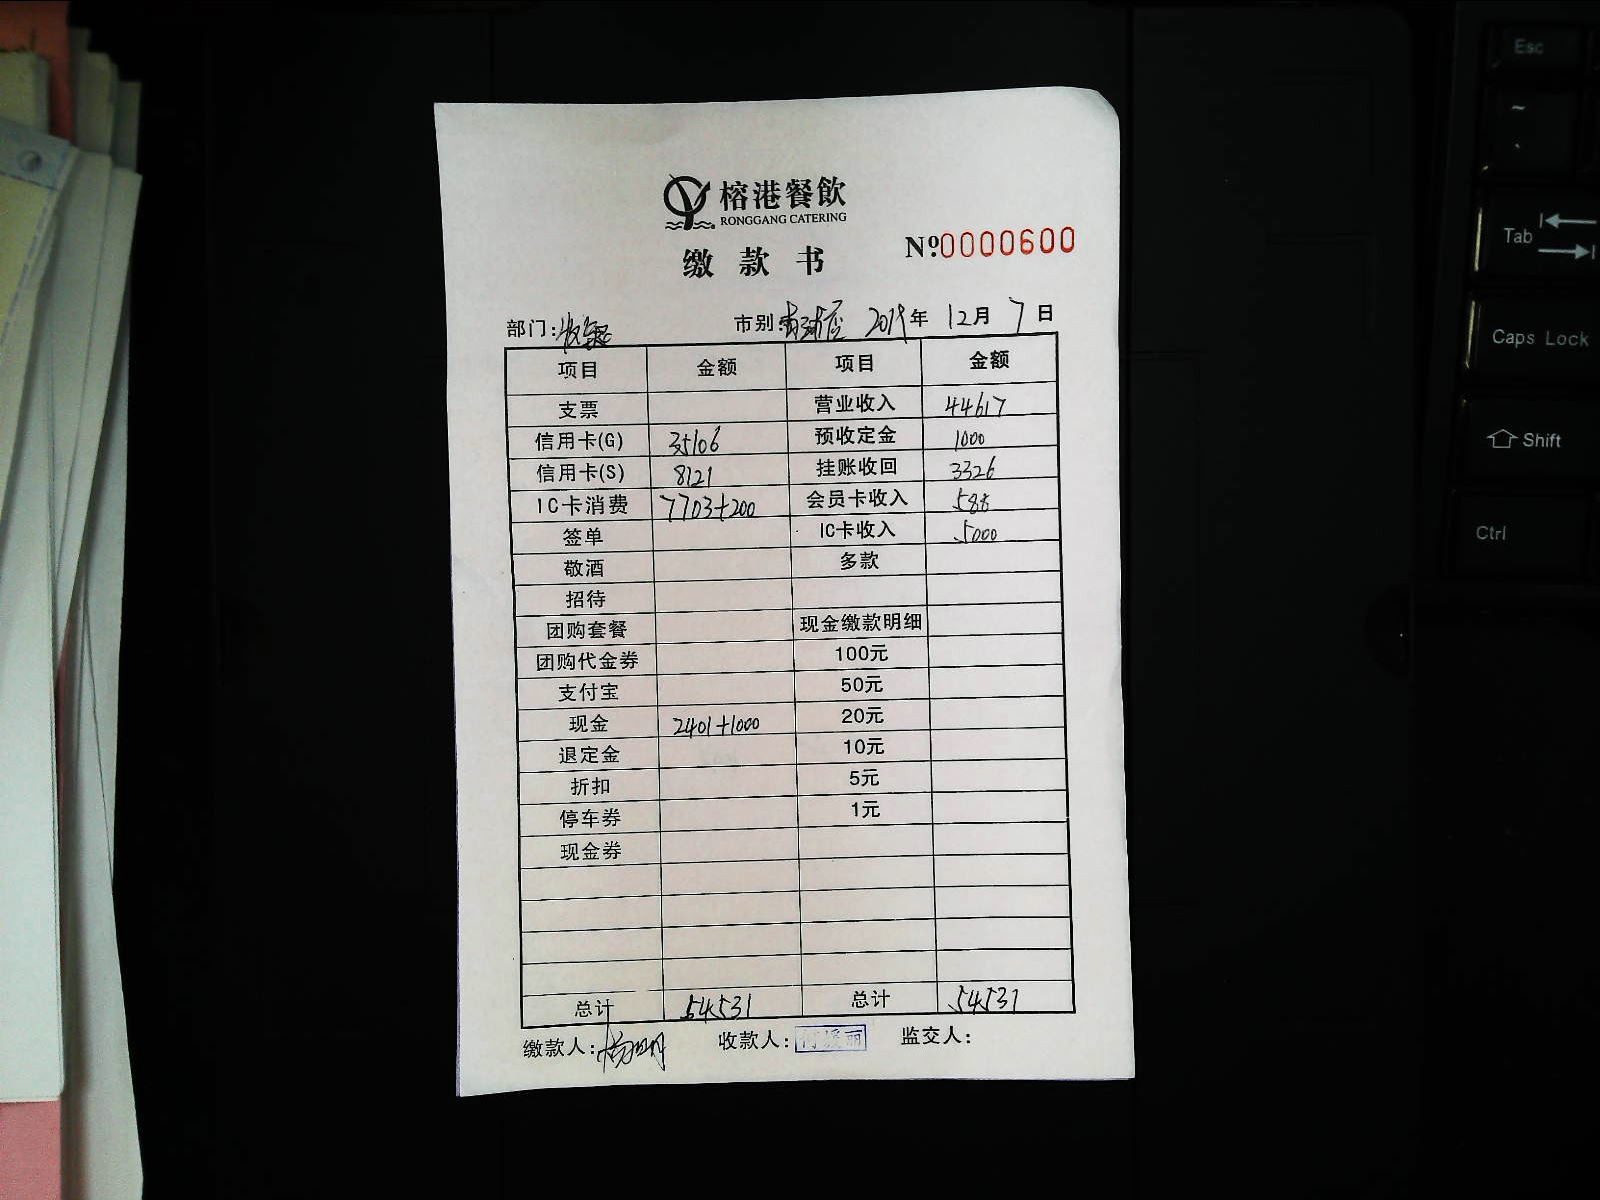 榕港餐飲
RONGGANG CATERING
缴款书
Nº 0000600
部门: 收银 市别: 2019年 12月 7日
项目 金额 项目 金额
支票 营业收入 44617
信用卡(G) 35106 预收定金 1000
信用卡(S) 8121 挂账收回 3326
IC卡消费 7703+200 会员卡收入 588
签单 IC卡收入 5000
敬酒 多款
招待
团购套餐 现金缴款明细
团购代金券 100元
支付宝 50元
现金 2401+1000 20元
退定金 10元
折扣 5元
停车券 1元
现金券
总计 54531 总计 54531
缴款人: 收款人: 媛丽 监交人:
Esc
~
Tab
Caps Lock
Shift
Ctrl